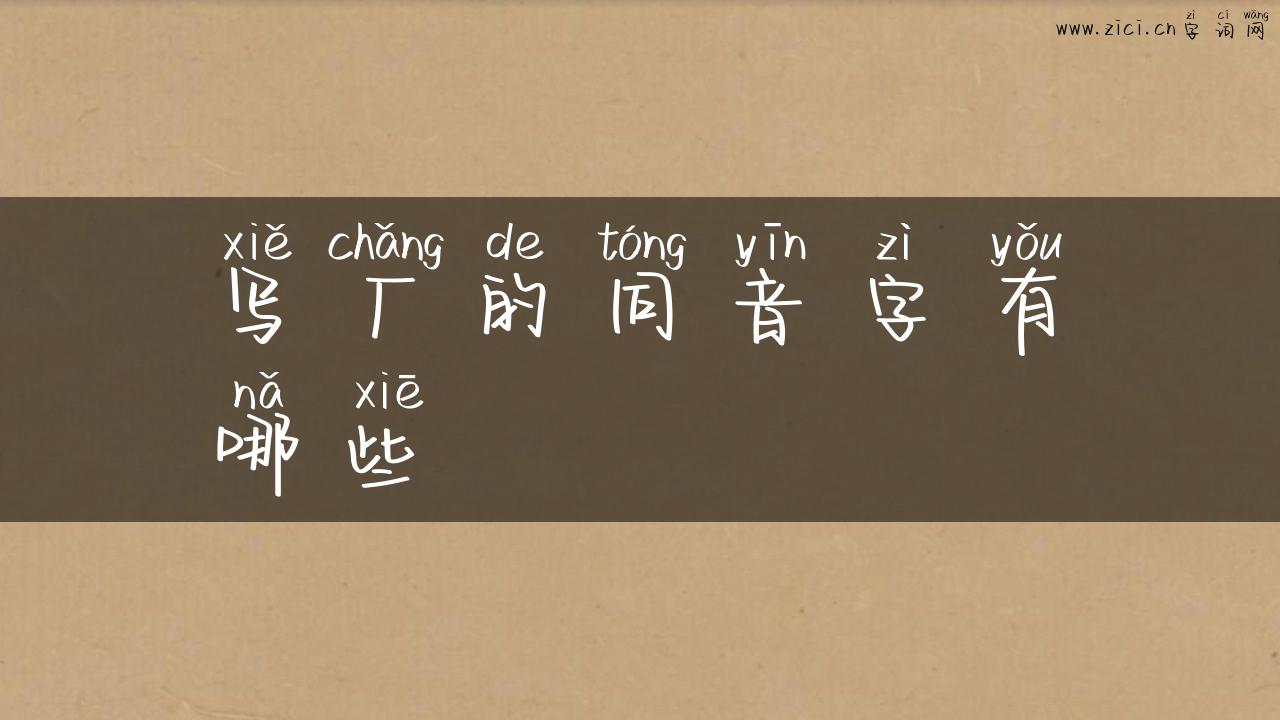 www.zici.cn zì cí wǎng
字词网
xiě chǎng de tóng yīn zì yǒu
写厂的同音字有
nǎ xiē
哪些